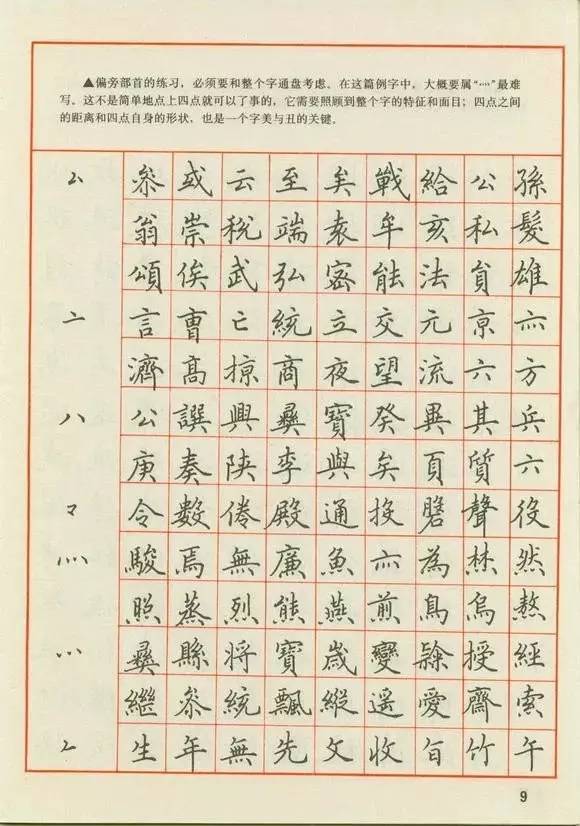 ▲偏旁部首的练习，必须要和整个字通盘考虑。在这篇例字中，大概要属“灬”最难
写。这不是简单地点上四点就可以了事的，它需要照顾到整个字的特征和面目；四点之间
的距离和四点自身的形状，也是一个字美与丑的关键。
厶 參 或 云 至 矣 戰 給 公 孫
翁 崇 税 端 袁 牟 亥 私 髮
頌 俟 武 弘 密 能 法 貟 雄
亠 言 亡 統 立 交 元 京 亦
濟 髙 掠 商 夜 望 流 六 方
八 公 譔 興 彝 寶 癸 異 其 兵
庚 奏 陕 李 與 矣 頁 質 六
令 數 倦 殿 通 投 聲 役
灬 駿 焉 無 廉 魚 亦 為 然
照 蒸 烈 熊 燕 煎 鳥 烏 熬
彝 縣 将 寶 歳 變 授 經
繼 參 統 飄 縱 遥 愛 齋 索
生 年 無 先 攵 收 旨 竹 午
9